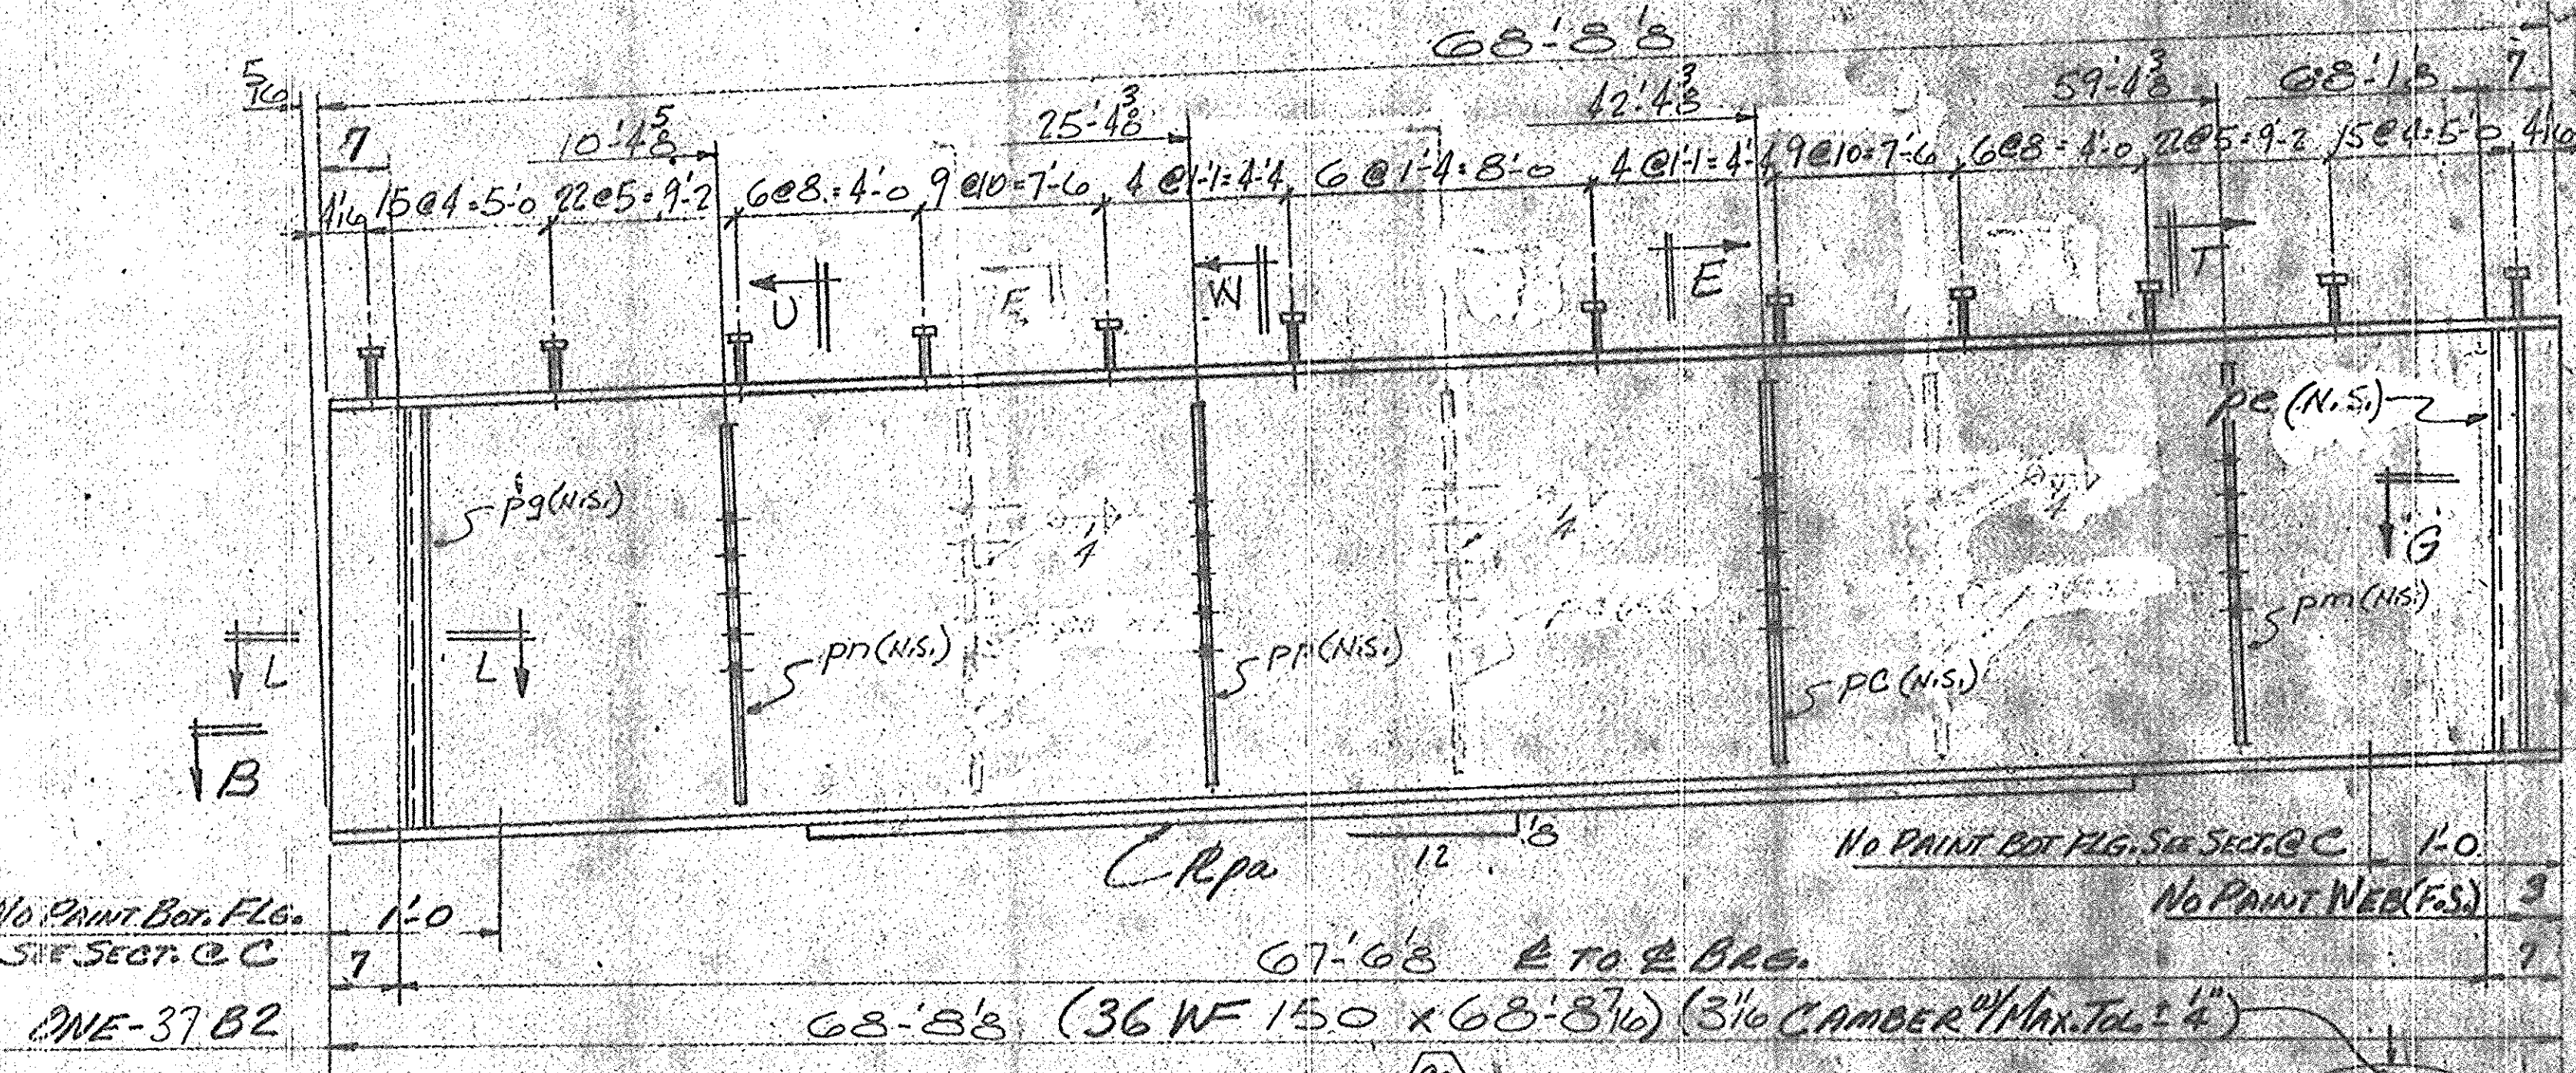 68'-8 1/8
5/16
7
10'-4 5/8
25'-4 3/8
42'-4 3/8
59'-4 3/8
68'-1 1/8
7
4 1/16 15@4=5'-0 22@5=9'-2 6@8=4'-0 9@10=7'-6 4@1'-1=4'-4 6@1'-4=8'-0 4@1'-1=4'-4 9@10=7'-6 6@8=4'-0 22@5=9'-2 15@4=5'-0 4 1/16
U
E
W
E
T
pe (N.S.)
pg (N.S.)
G
pm (N.S.)
pn (N.S.)
pp (N.S.)
pc (N.S.)
L
L
B
12
1/8
PL pa
NO PAINT BOT FLG. SEE SECT. @ C 1'-0
NO PAINT WEB (F.S.) 3
NO PAINT BOT. FLG. 1'-0
SEE SECT. @ C
7
67'-6 1/8 ℄ TO ℄ BRG.
7
ONE-37B2
68'-8 1/8 (36 WF 150 x 68'-8 7/16) (3 1/16 CAMBER W/MAX. TOL. ± 1/4")